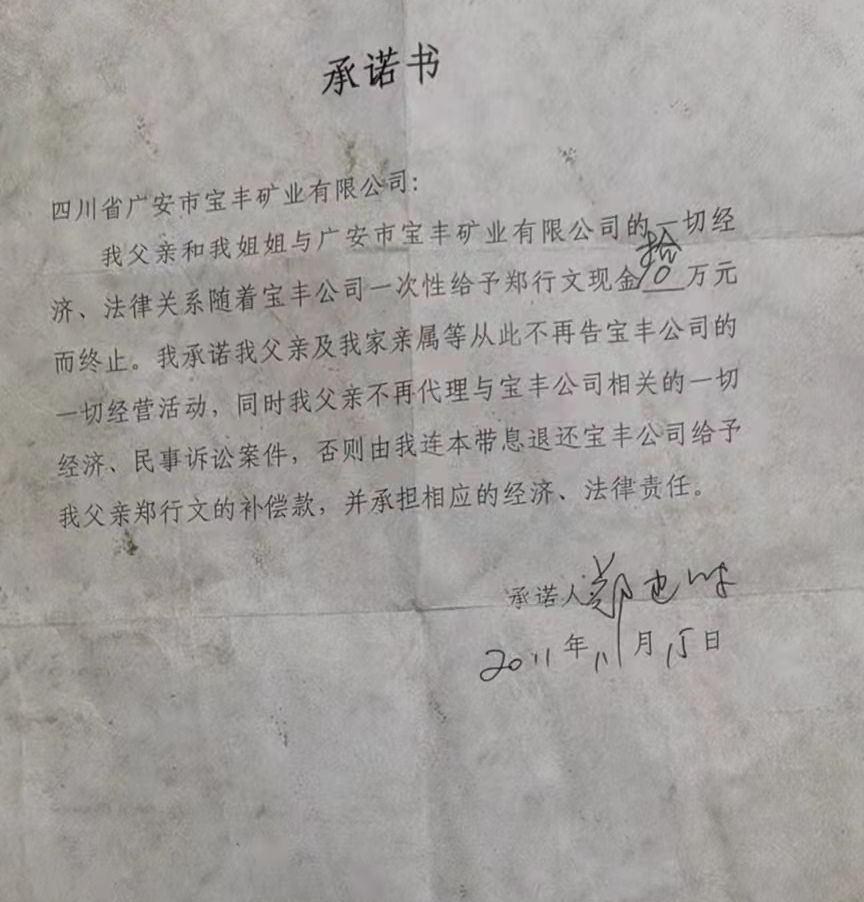 承诺书
四川省广安市宝丰矿业有限公司：
我父亲和我姐姐与广安市宝丰矿业有限公司的一切经
拾
济、法律关系随着宝丰公司一次性给予郑行文现金10万元
而终止。我承诺我父亲及我家亲属等从此不再告宝丰公司的
一切经营活动，同时我父亲不再代理与宝丰公司相关的一切
经济、民事诉讼案件，否则由我连本带息退还宝丰公司给予
我父亲郑行文的补偿款，并承担相应的经济、法律责任。
承诺人：郑
2011年11月15日